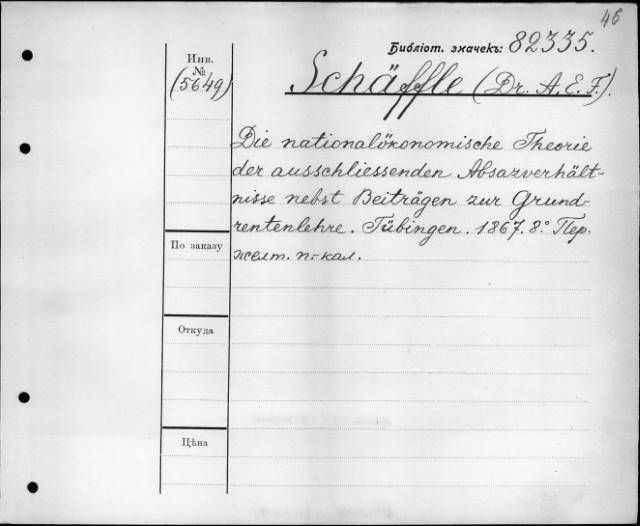 46
Библіот. значекъ: 82335.
Инв.
№
(5649)
Schäffle (Dr. A. E. F.).
Die nationalökonomische Theorie
der ausschliessenden Absazverhält-
nisse nebst Beiträgen zur Grund-
rentenlehre. Tübingen. 1867. 8.° Пер.
желт. п.-кал.
По заказу
Откуда
Цѣна